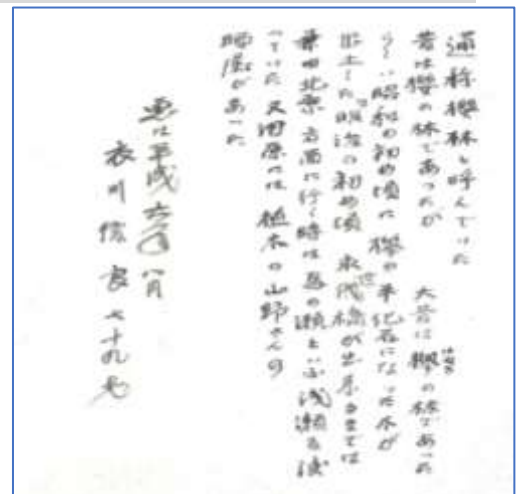 通称櫻林と呼んでいた
昔は櫻の林であったが 大昔は欅の林であった
らしい昭和の初め頃に欅の半化石になった木が
出土した 明治の初め頃 永代橋が出来るまでは
北原方面に行く時は 瀬といふ浅瀬を渡
っていた 又田原には 植木の山野さんの
晒屋があった
平成六年八月
衣川 良 七十九才